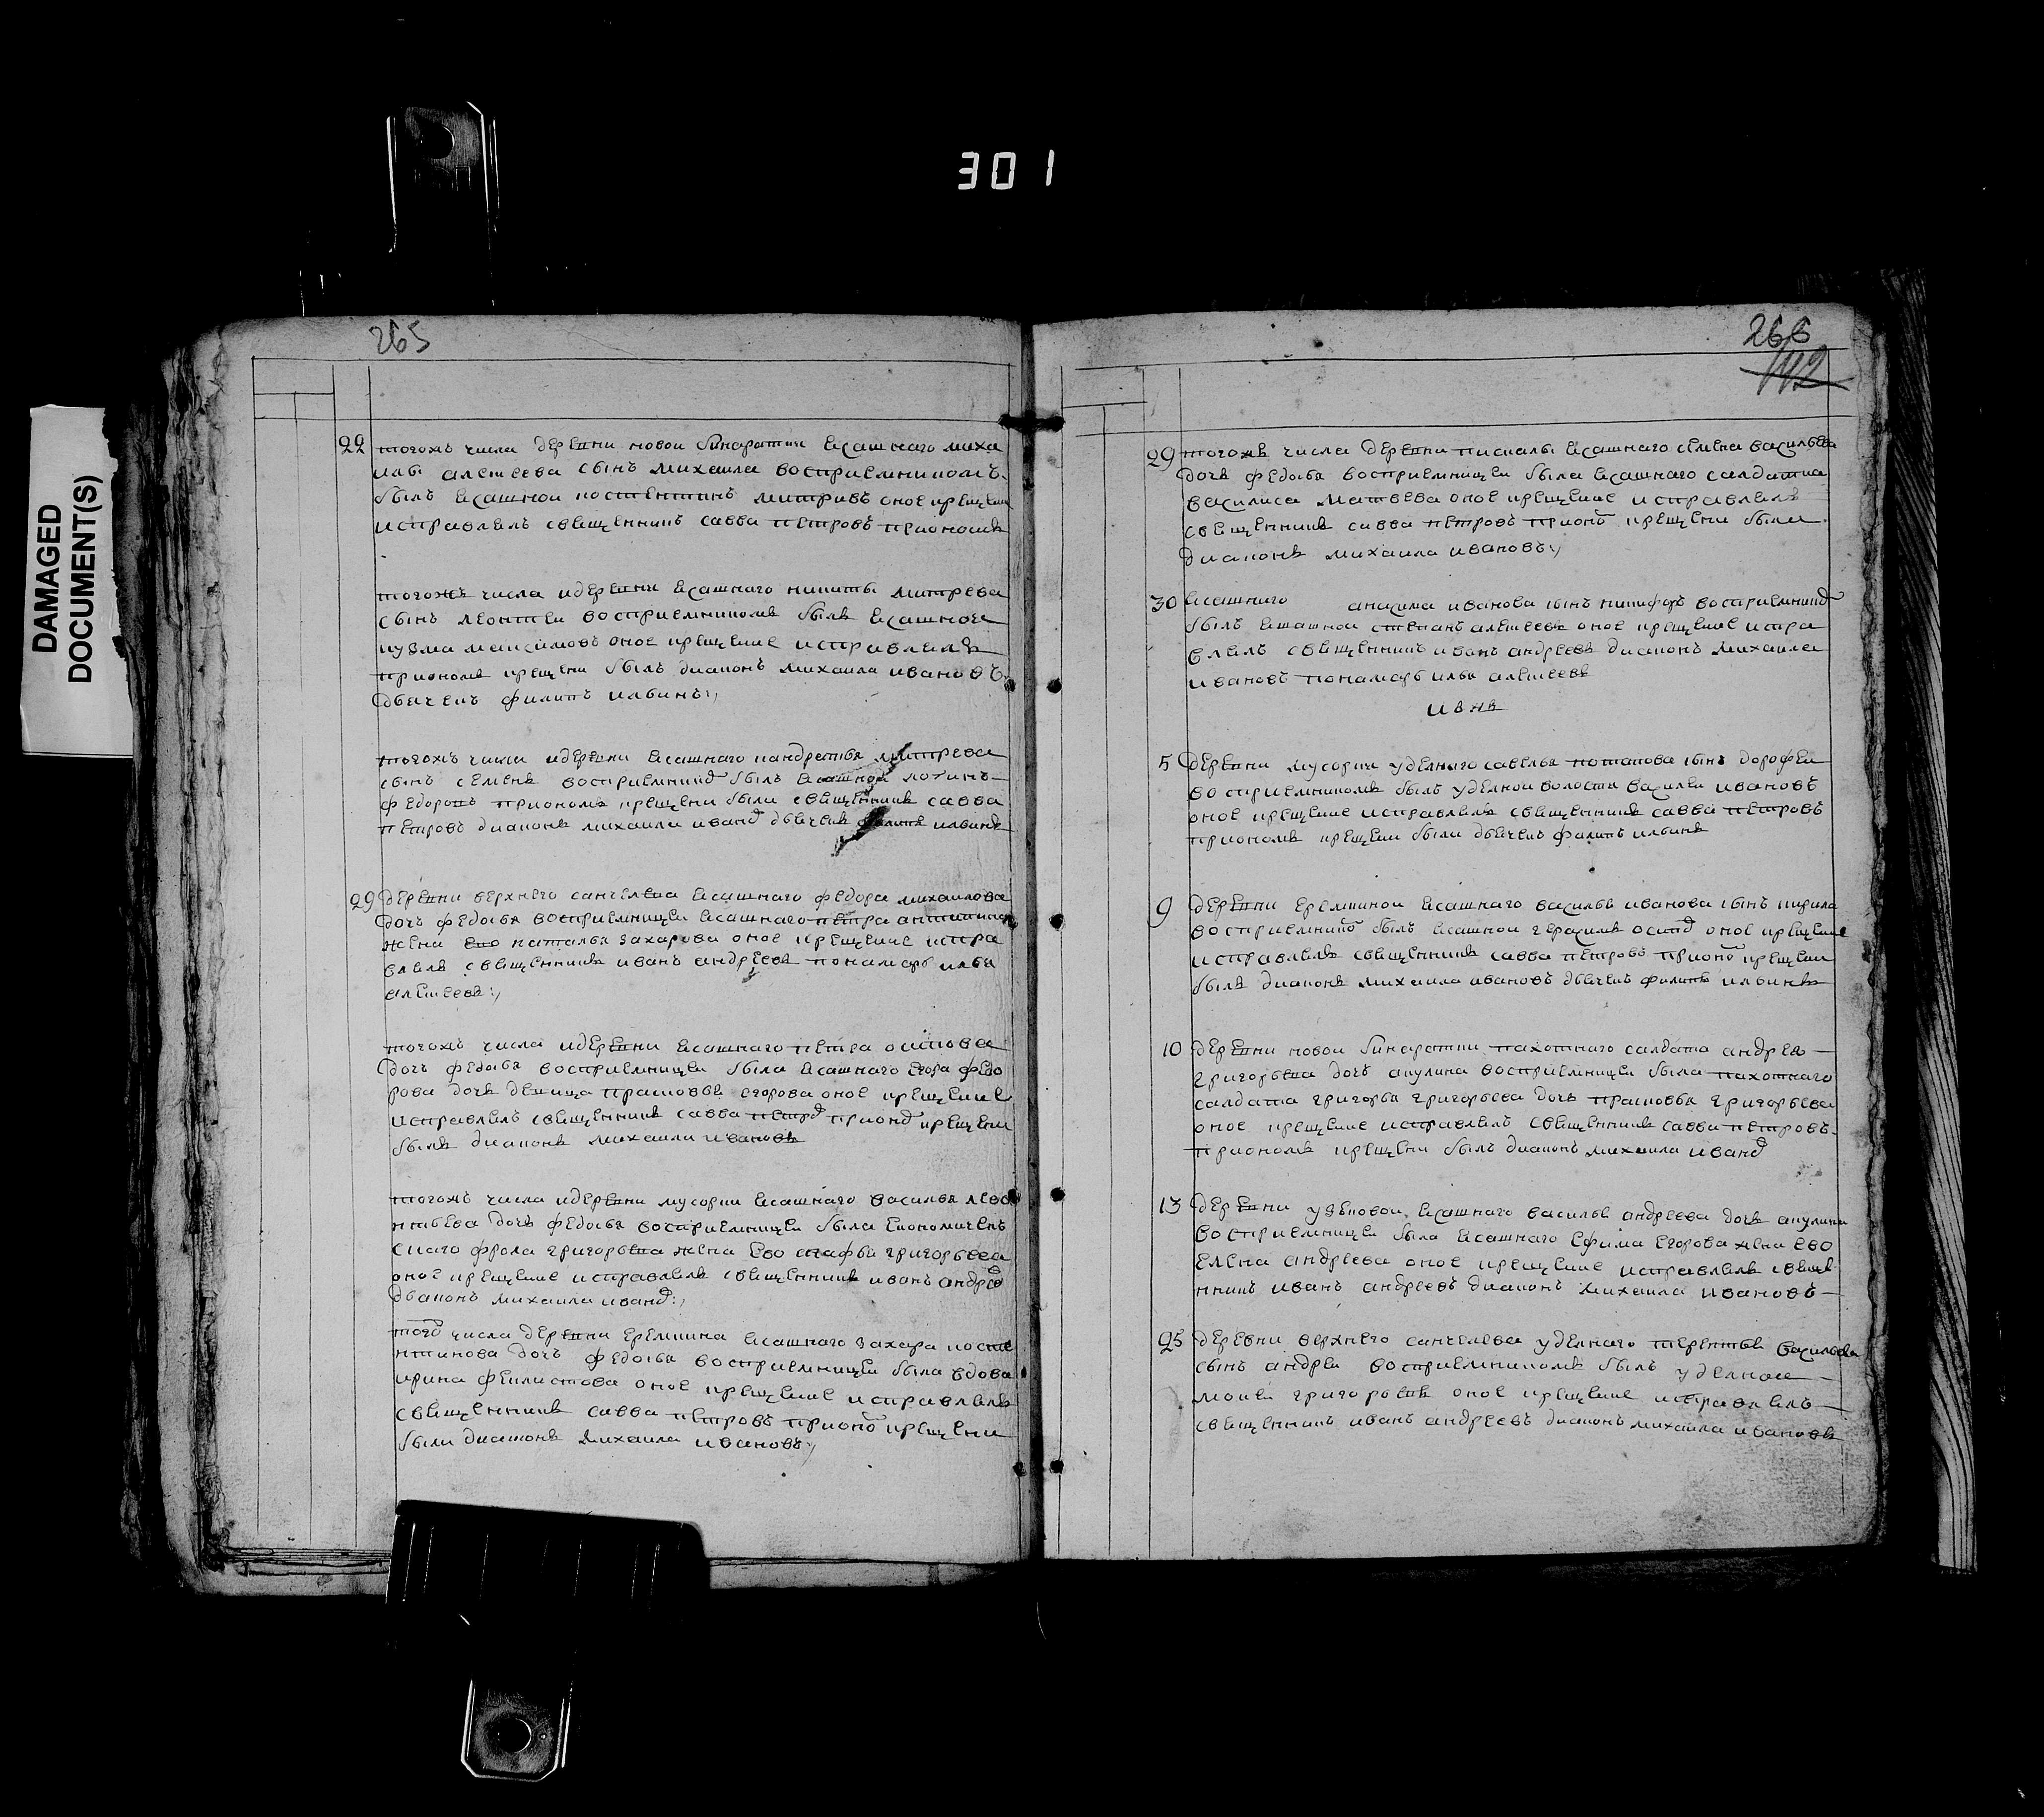 301
DAMAGED
DOCUMENT(S)
265
22 тогожъ числа деревни новой бинаратки ясашнаго миха
илы алексеева сынъ михаила восприемникомъ
былъ ясашной костентинъ митривъ оное крещение
исправлялъ священникъ савва петровъ при ономъ
тогожъ числа и деревни ясашнаго никиты митрева
сынъ леонтеи восприемникомъ былъ ясашной
кузма максимовъ оное крещение исправлялъ
при ономъ крещени былъ диаконъ михаила ивановъ
дьячекъ филипъ ильинъ
тогожъ числа и деревни ясашнаго кандратья митрева
сынъ семенъ восприемникд былъ ясашной логинъ
федоровъ при ономъ крещени были священникъ савва
петровъ диаконъ михаила иванд дьячекъ филипъ ильинъ
29 деревни верхнего санчелеева ясашнаго федора михаилова
дочь федосья восприемницеи ясашнаго петра
жена ево наталья захарова оное крещение испра
влялъ священникъ иванъ андреевъ понамарь илья
алексеевъ
тогожъ числа и деревни ясашнаго петра осипова
дочь федосья восприемницеи была ясашнаго егора федо
рова дочь девица прасковья егорова оное крещение
исправлялъ священникъ савва петрд при онд крещени
былъ диаконъ михаила ивановъ
тогожъ числа и деревни мусорки ясашнаго василья лево
нтьева дочь федосья восприемницеи была економическ
скаго фрола григорьева жена ево агафья григорьева
оное крещение исправлялъ священникъ иванъ андред
дьаконъ михаила иванд
тогд числа деревни еремкина ясашнаго захара косте
нтинова дочь федосья восприемницеи была вдова
ирина феклистова оное крещение исправлялъ
священникъ савва петровъ при оно крещени
были диаконъ михаила ивановъ
266
142
29 тогожъ числа деревни пискалы ясашнаго семена васильева
дочь федосья восприемницеи была ясашнаго салдатка
василиса матвеева оное крещение исправлялъ
священникъ савва петровъ при оно крещени были
диаконъ михаила ивановъ
30 ясашнаго анисима иванова сынъ никифоръ восприемникд
былъ ясашной степанъ алексеевъ оное крещение испра
влялъ священникъ иванъ андреевъ диаконъ михаила
ивановъ понамарь илья алексеевъ
июнь
5 деревни мусорки уделнаго савелья потапова сынъ дорофеи
восприемникомъ былъ уделной волости василеи ивановъ
оное крещение исправлялъ священникъ савва петровъ
при ономъ крещени были дьячекъ филипъ ильинъ
9 деревни еремкиной ясашнаго василья иванова сынъ кирила
восприемнико былъ ясашной герасимъ осипд оное крещение
исправлялъ священникъ савва петровъ при оно крещени
былъ диаконъ михаила ивановъ дьячекъ филипъ ильинъ
10 деревни новой бинаратки пахотнаго салдата андрея
григорьева дочь акулина восприемницеи была пахотнаго
салдата григорья григорьева дочь прасковья григорьева
оное крещение исправлялъ священникъ савва петровъ
при ономъ крещени былъ диаконъ михаила иванд
13 деревни узюковой ясашнаго василья андреева дочь акулина
восприемницеи была ясашнаго ефима егорова жена ево
елена андреева оное крещение исправлялъ свяще
нникъ иванъ андреевъ диаконъ михаила ивановъ
25 деревни верхнего санчелеева уделнаго терентья васильева
сынъ андреи восприемникомъ былъ уделнои
мокеи григорьевъ оное крещение исправлялъ
священникъ иванъ андреевъ диаконъ михаила ивановъ